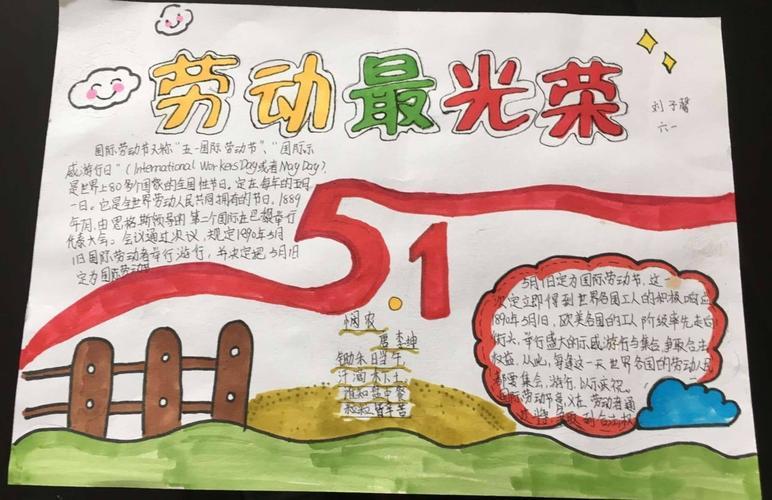 劳动最光荣
刘子馨
六一
国际劳动节又称"五一国际劳动节"、"国际示
威游行日"(International Workers Day或者May Day),
是世界上80多个国家的全国性节日。定在每年的五月
一日。它是全世界劳动人民共同拥有的节日。1889
年7月,由恩格斯领导的第二个国际在巴黎举行
代表大会。会议通过决议,规定1890年5月
1日国际劳动者举行游行,并决定把5月1日
定为国际劳动节
5.1
悯农
唐 李坤
锄禾日当午
汗滴禾下土
谁知盘中餐
粒粒皆辛苦
5月1日定为国际劳动节,这一
决定立即得到世界各国工人的积极响应
1890年5月1日,欧美各国的工人阶级率先走向
街头,举行盛大的示威游行与集会,争取合法
权益。从此,每逢这一天世界各国的劳动人民
都要集会、游行,以示庆祝。
国际劳动节意义在劳动者通